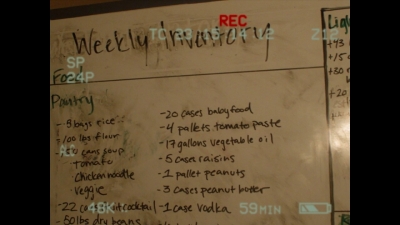 REC
TC 03:05:14:12
Z12
Weekly Inventory
SP
24P
Food
Pantry
- 8 bags rice
- 100 lbs flour
cans soup
tomato
chicken noodle
veggie
- 22 cocktail
- 50 lbs dry beans
- 20 cases baby food
- 4 pallets tomato paste
- 17 gallons vegetable oil
- 5 cases raisins
- 1 pallet peanuts
- 3 cases peanut butter
- 1 case vodka
Ligh
+43
+15
+30
+20
48K
59MIN